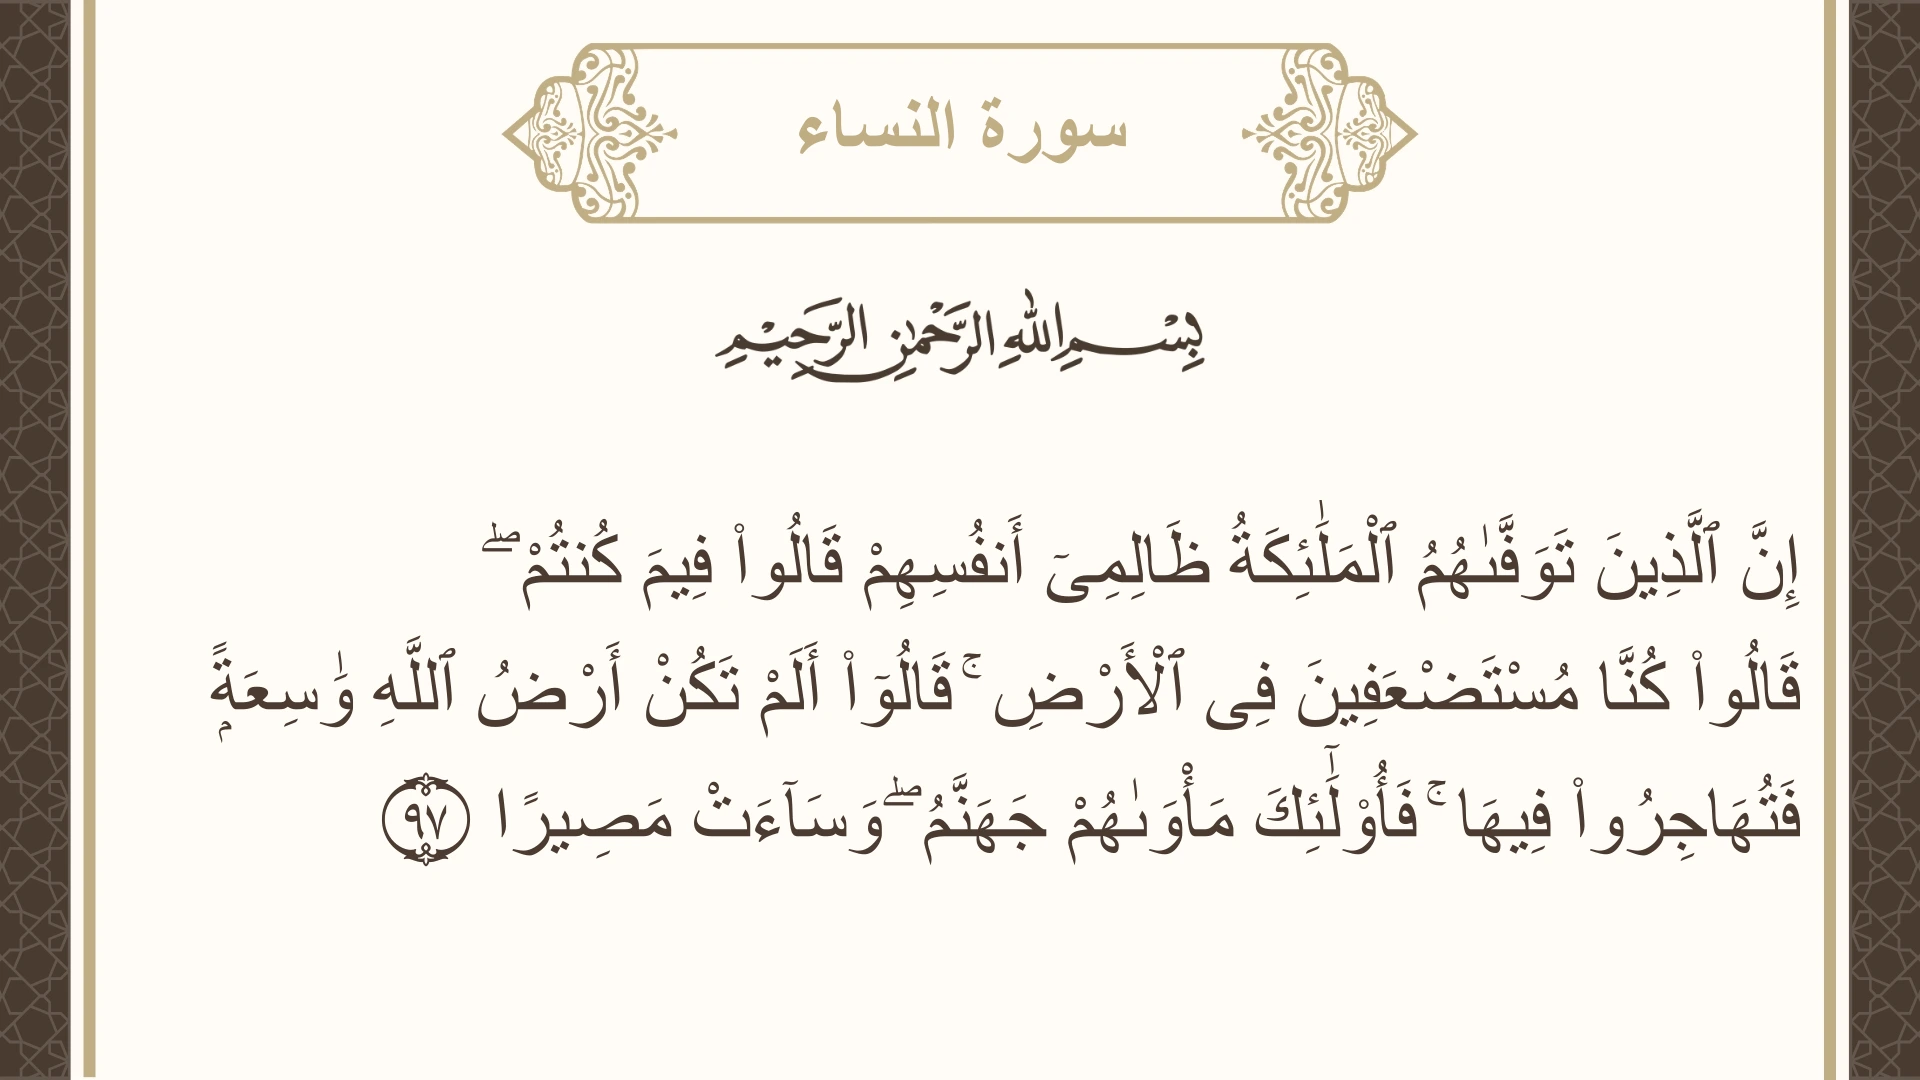 سورة النساء
بِسْمِ اللهِ الرَّحْمٰنِ الرَّحِيْمِ
إِنَّ ٱلَّذِينَ تَوَفَّىٰهُمُ ٱلْمَلَٰٓئِكَةُ ظَالِمِىٓ أَنفُسِهِمْ قَالُوا۟ فِيمَ كُنتُمْ ۖ
قَالُوا۟ كُنَّا مُسْتَضْعَفِينَ فِى ٱلْأَرْضِ ۚ قَالُوٓا۟ أَلَمْ تَكُنْ أَرْضُ ٱللَّهِ وَٰسِعَةًۭ
فَتُهَاجِرُوا۟ فِيهَا ۚ فَأُو۟لَٰٓئِكَ مَأْوَىٰهُمْ جَهَنَّمُ ۖ وَسَآءَتْ مَصِيرًا ٩٧